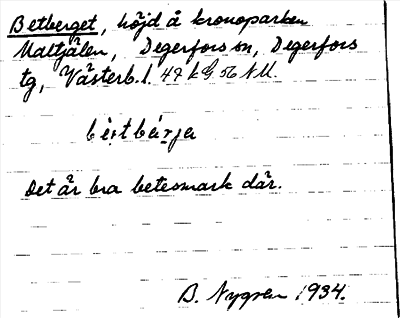 Betberget, höjd å kronoparken
Maltjälen, Degerfors sn, Degerfors
tg, Västerb. l. 49 k G 56 NU.
bètbárja
Det är bra betesmark där.
B. Nygren 1934.